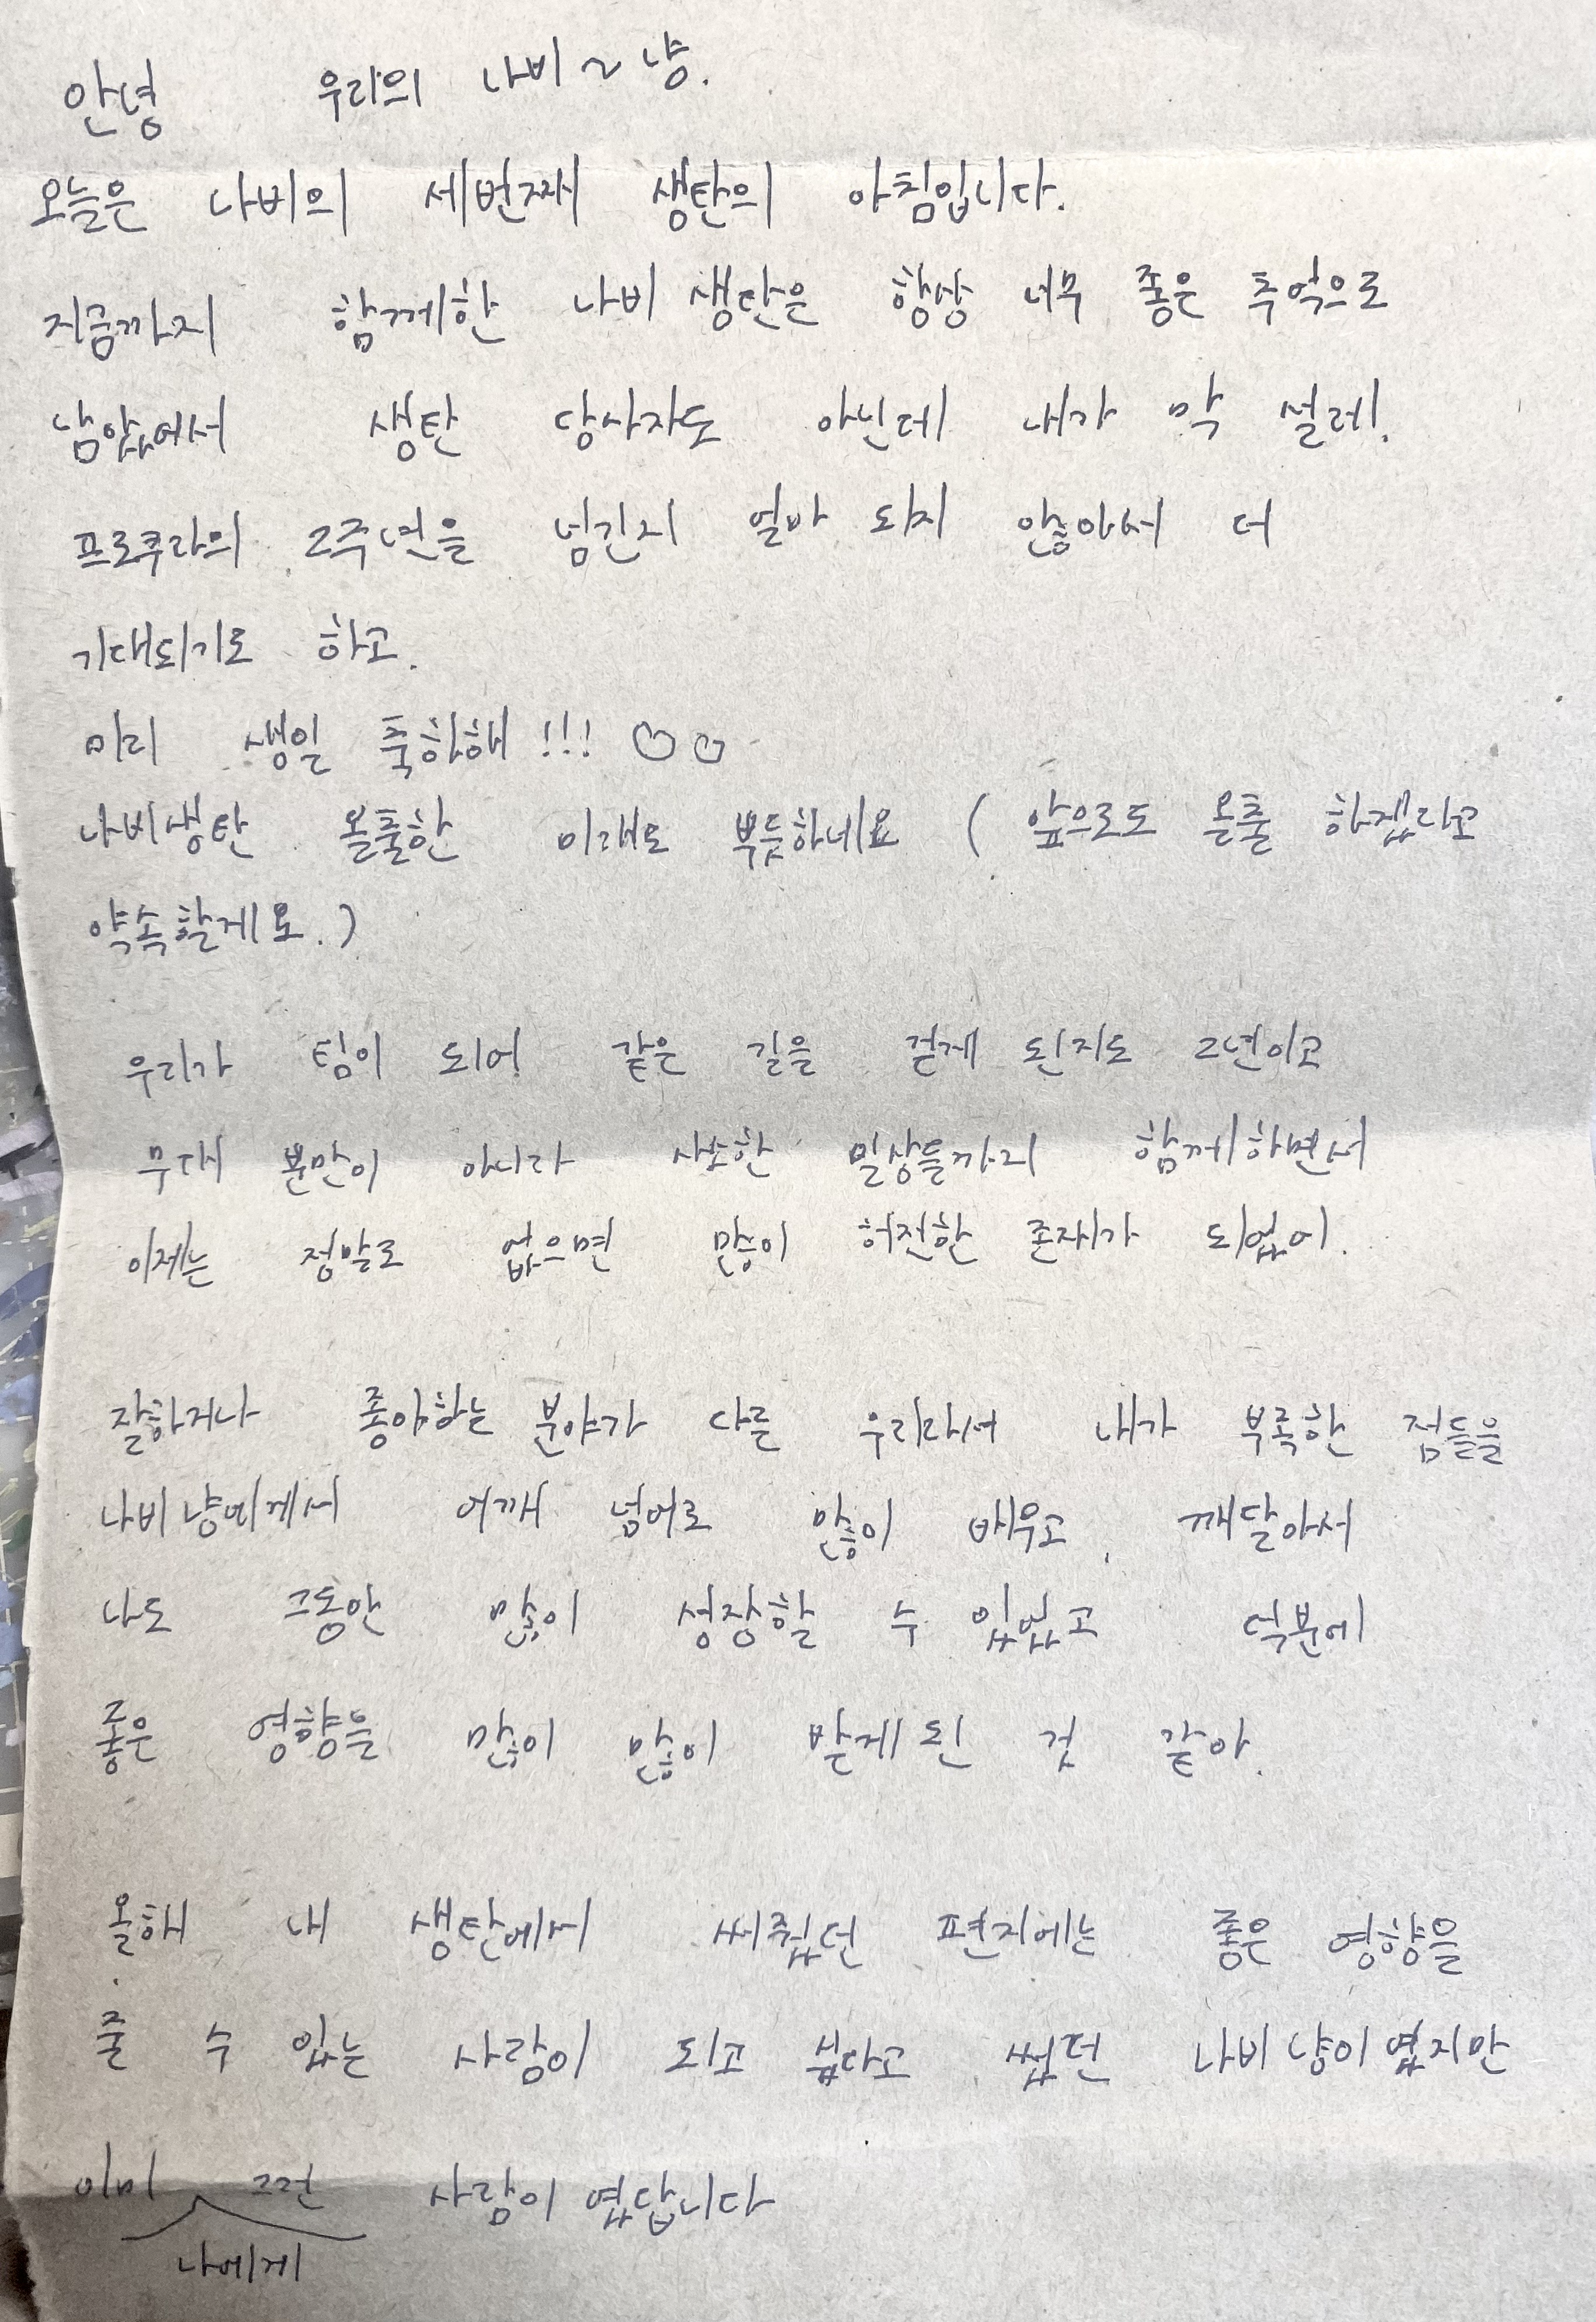 안녕 우리의 나비~냥.
오늘은 나비의 세번째 생탄의 아침입니다.
지금까지 함께한 나비 생탄은 항상 너무 좋은 추억으로
남았어서 생탄 당사자도 아닌데 내가 막 설레.
프로쿠라의 2주년을 넘긴지 얼마 되지 않아서 더
기대되기도 하고.
미리 생일 축하해!!! ♡♡
나비생탄 올출한 미래도 뿌듯하네요 (앞으로도 올출 하겠다고
약속할게요.)
우리가 팀이 되어 같은 길을 걷게 된지도 2년이고
무대 뿐만이 아니라 사소한 일상들까지 함께하면서
이제는 정말로 없으면 많이 허전한 존재가 되었어.
잘하거나 좋아하는 분야가 다른 우리라서 내가 부족한 점들을
나비냥에게서 어깨 넘어로 많이 배우고, 깨달아서
나도 그동안 많이 성장할 수 있었고 덕분에
좋은 영향을 많이 많이 받게 된 것 같아.
올해 내 생탄에서 써줬던 편지에는 좋은 영향을
줄 수 있는 사람이 되고 싶다고 썼던 나비냥이였지만
이미 나에게 그런 사람이였답니다